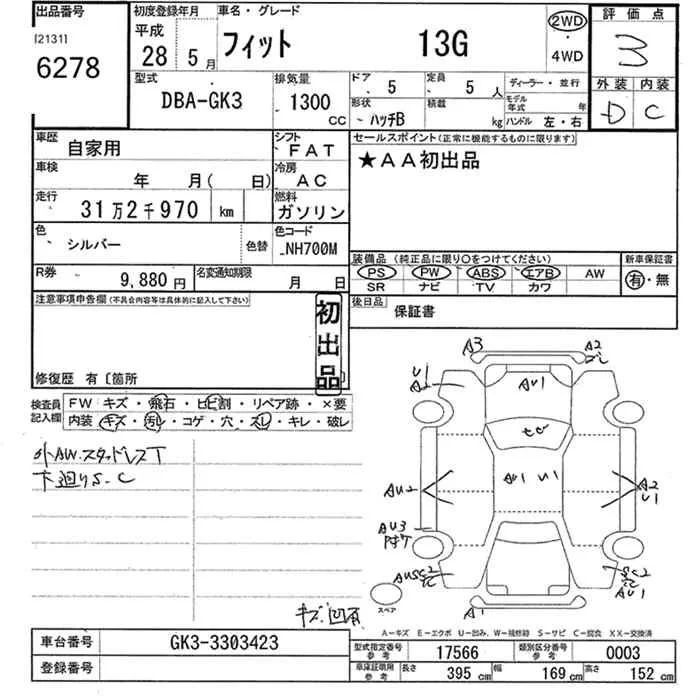 出品番号 初度登録年月 車名・グレード 評価点
[2131] 平成 28 5月 フィット 13G 2WD 3
6278 4WD
型式 排気量 ドア 定員 ディーラー・並行 外装 内装
DBA-GK3 1300 CC 5 5人 モデル年式 年 D C
形状 ハッチB 積載 kg ハンドル 左・右
車歴 自家用 シフト FAT セールスポイント(正常に機能するものに限ります)
車検 年 月( 日) 冷房 AC ★AA初出品
走行 31万2千970 km 燃料 ガソリン
色 シルバー 色替 色コード NH700M
装備品 (純正品に限り○をつけてください) 新車保証書
R券 9,880円 名変通知期限 月 日 PS PW ABS エアB AW 有・無
SR ナビ TV カワ
注意事項申告欄(不具合内容等は具体的に記入して下さい) 初出品 後日品 保証書
修復歴 有 [箇所
検査員記入欄 FW キズ・飛石・ヒビ割・リペア跡・×要
内装 キズ・汚れ・コゲ・穴・スレ・キレ・破レ
A3 A2
U1 A2 AU1
外AW.スタッドレスT
下廻りS.C
AU1 U1
AU2 A2 U1
AU3
SC2
AU1
A1
スペア
A-キズ E-エクボ U-凹み、W-補修跡 S-サビ C-腐食 XX-交換済
車台番号 GK3-3303423 型式指定番号 参考 17566 類別区分番号 参考 0003
登録番号 車庫証明用 参考 長さ 395 cm 幅 169 cm 高さ 152 cm